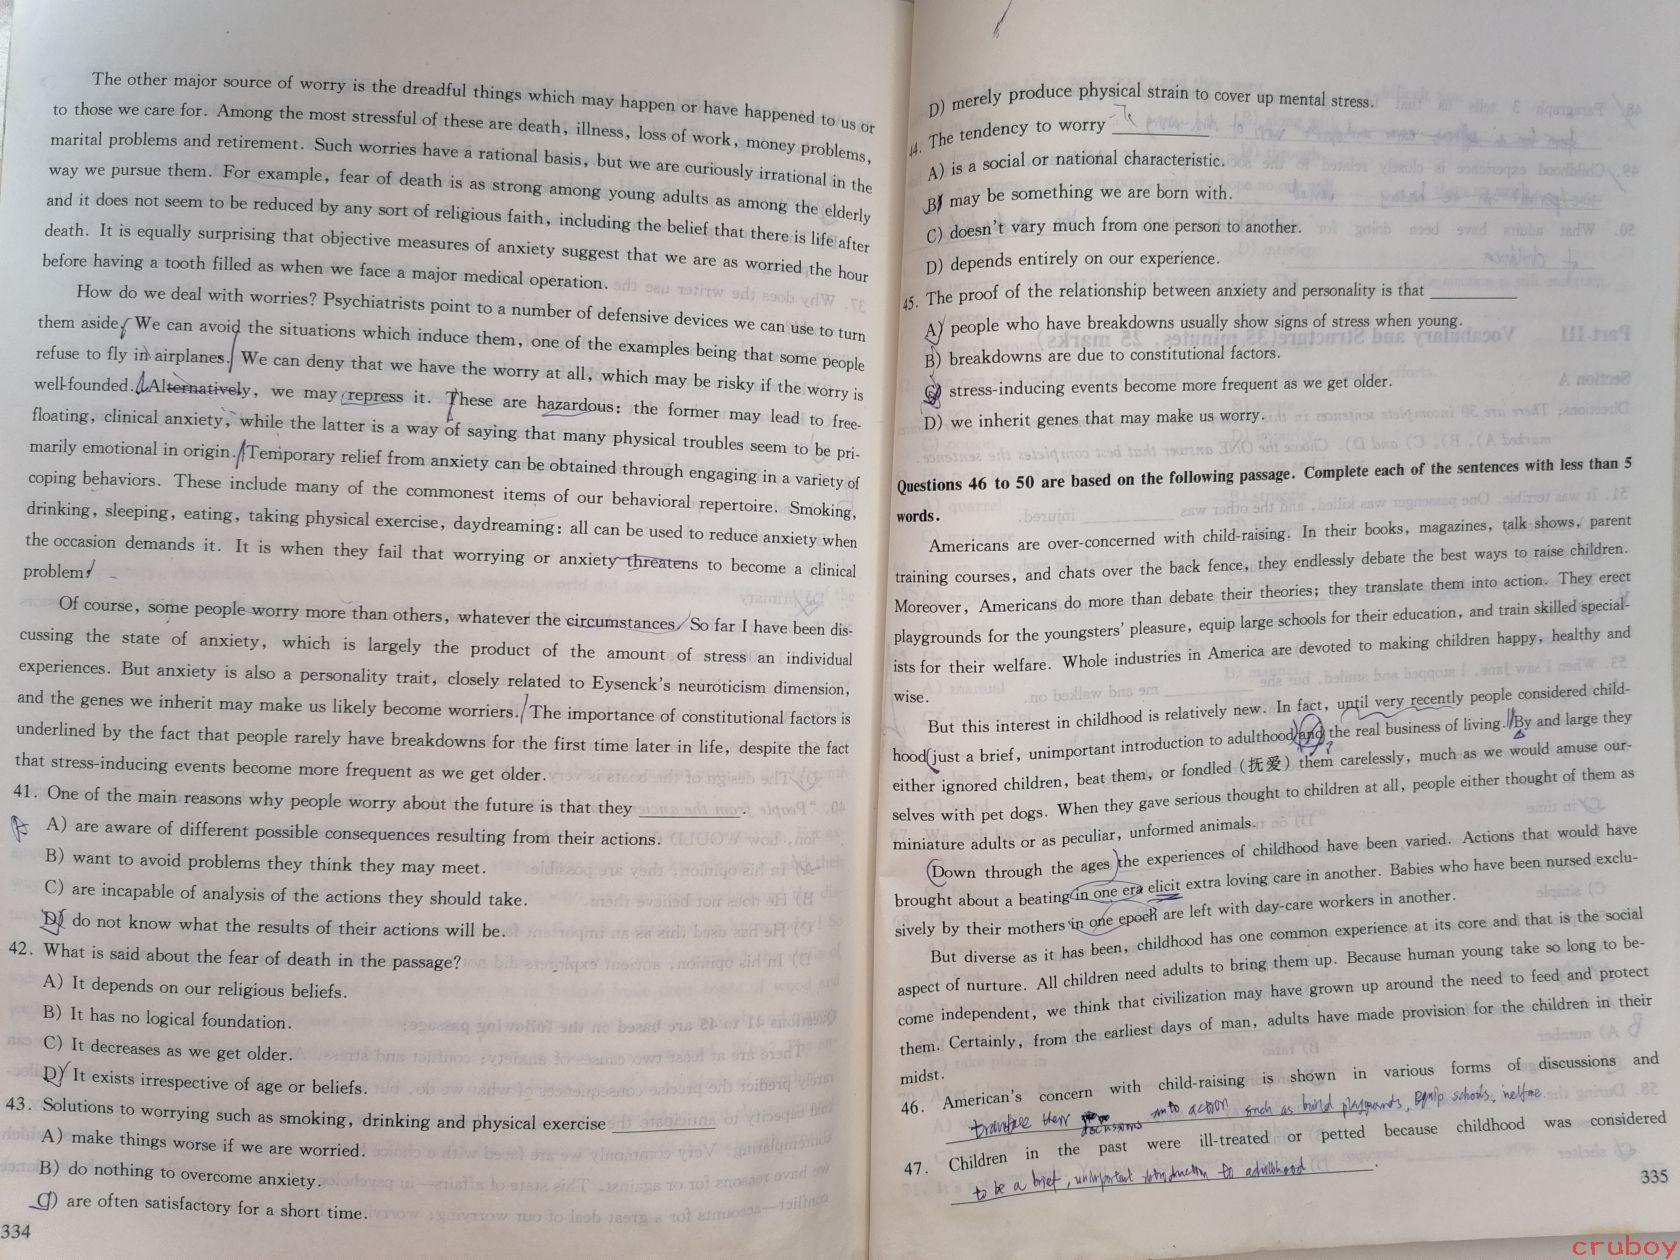 The other major source of worry is the dreadful things which may happen or have happened to us or
to those we care for. Among the most stressful of these are death, illness, loss of work, money problems,
marital problems and retirement. Such worries have a rational basis, but we are curiously irrational in the
way we pursue them. For example, fear of death is as strong among young adults as among the elderly
and it does not seem to be reduced by any sort of religious faith, including the belief that there is life after
death. It is equally surprising that objective measures of anxiety suggest that we are as worried the hour
before having a tooth filled as when we face a major medical operation.
How do we deal with worries? Psychiatrists point to a number of defensive devices we can use to turn
them aside. We can avoid the situations which induce them, one of the examples being that some people
refuse to fly in airplanes. We can deny that we have the worry at all, which may be risky if the worry is
well-founded. Alternatively, we may repress it. These are hazardous: the former may lead to free-
floating, clinical anxiety, while the latter is a way of saying that many physical troubles seem to be pri-
marily emotional in origin. Temporary relief from anxiety can be obtained through engaging in a variety of
coping behaviors. These include many of the commonest items of our behavioral repertoire. Smoking,
drinking, sleeping, eating, taking physical exercise, daydreaming: all can be used to reduce anxiety when
the occasion demands it. It is when they fail that worrying or anxiety threatens to become a clinical
problem.
Of course, some people worry more than others, whatever the circumstances. So far I have been dis-
cussing the state of anxiety, which is largely the product of the amount of stress an individual
experiences. But anxiety is also a personality trait, closely related to Eysenck's neuroticism dimension,
and the genes we inherit may make us likely become worriers. The importance of constitutional factors is
underlined by the fact that people rarely have breakdowns for the first time later in life, despite the fact
that stress-inducing events become more frequent as we get older.
41. One of the main reasons why people worry about the future is that they ________.
A) are aware of different possible consequences resulting from their actions.
B) want to avoid problems they think they may meet.
C) are incapable of analysis of the actions they should take.
D) do not know what the results of their actions will be.
42. What is said about the fear of death in the passage?
A) It depends on our religious beliefs.
B) It has no logical foundation.
C) It decreases as we get older.
D) It exists irrespective of age or beliefs.
43. Solutions to worrying such as smoking, drinking and physical exercise ________
A) make things worse if we are worried.
B) do nothing to overcome anxiety.
C) are often satisfactory for a short time.
334
D) merely produce physical strain to cover up mental stress.
44. The tendency to worry ________
A) is a social or national characteristic.
B) may be something we are born with.
C) doesn't vary much from one person to another.
D) depends entirely on our experience.
45. The proof of the relationship between anxiety and personality is that ________
A) people who have breakdowns usually show signs of stress when young.
B) breakdowns are due to constitutional factors.
C) stress-inducing events become more frequent as we get older.
D) we inherit genes that may make us worry.
Questions 46 to 50 are based on the following passage. Complete each of the sentences with less than 5
words.
Americans are over-concerned with child-raising. In their books, magazines, talk shows, parent
training courses, and chats over the back fence, they endlessly debate the best ways to raise children.
Moreover, Americans do more than debate their theories; they translate them into action. They erect
playgrounds for the youngsters' pleasure, equip large schools for their education, and train skilled special-
ists for their welfare. Whole industries in America are devoted to making children happy, healthy and
wise.
But this interest in childhood is relatively new. In fact, until very recently people considered child-
hood just a brief, unimportant introduction to adulthood and the real business of living. By and large they
either ignored children, beat them, or fondled (抚爱) them carelessly, much as we would amuse our-
selves with pet dogs. When they gave serious thought to children at all, people either thought of them as
miniature adults or as peculiar, unformed animals.
Down through the ages the experiences of childhood have been varied. Actions that would have
brought about a beating in one era elicit extra loving care in another. Babies who have been nursed exclu-
sively by their mothers in one epoch are left with day-care workers in another.
But diverse as it has been, childhood has one common experience at its core and that is the social
aspect of nurture. All children need adults to bring them up. Because human young take so long to be-
come independent, we think that civilization may have grown up around the need to feed and protect
them. Certainly, from the earliest days of man, adults have made provision for the children in their
midst.
46. American's concern with child-raising is shown in various forms of discussions and
into action such as build playgrounds, equip schools, welfare
47. Children in the past were ill-treated or petted because childhood was considered
to be a brief, unimportant introduction to adulthood.
335
cruboy